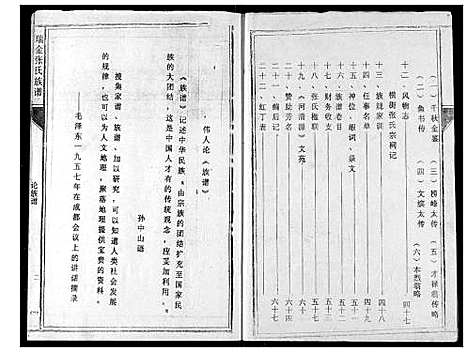 (一)千秋金鉴 (三)榜峰太传 (五)才禄翁传略
(二)鱼书传 (四)文缤太传 (六)本烈翁略
十二、风物志 四十七
横街张氏宗祠记
十三、族规家训 四十九
十四、任事名单 五十
十五、神位、服词、景文 五十一
十六、族谱卷目 五十三
十七、财务收支 五十五
十八、张氏楹联 五十七
十九、《河清颂》文苑
二十、赞助芳名 六十
二十一、编后记 六十六
二十二、红丁表 六十七
瑞金张氏族谱
论族谱
伟人论《族谱》
《族谱》记述中华民族。由宗族的团结扩充至国家民
族的大团结,这是中国人才有的传统观念,应妥加利用。
孙中山语
搜集家谱、族谱,加以研究,可以知道人类社会发展
的规律,也可以为人文地理,聚落地理提供宝贵的资料。
毛泽东一九五七年在成都会议上的讲话摘录